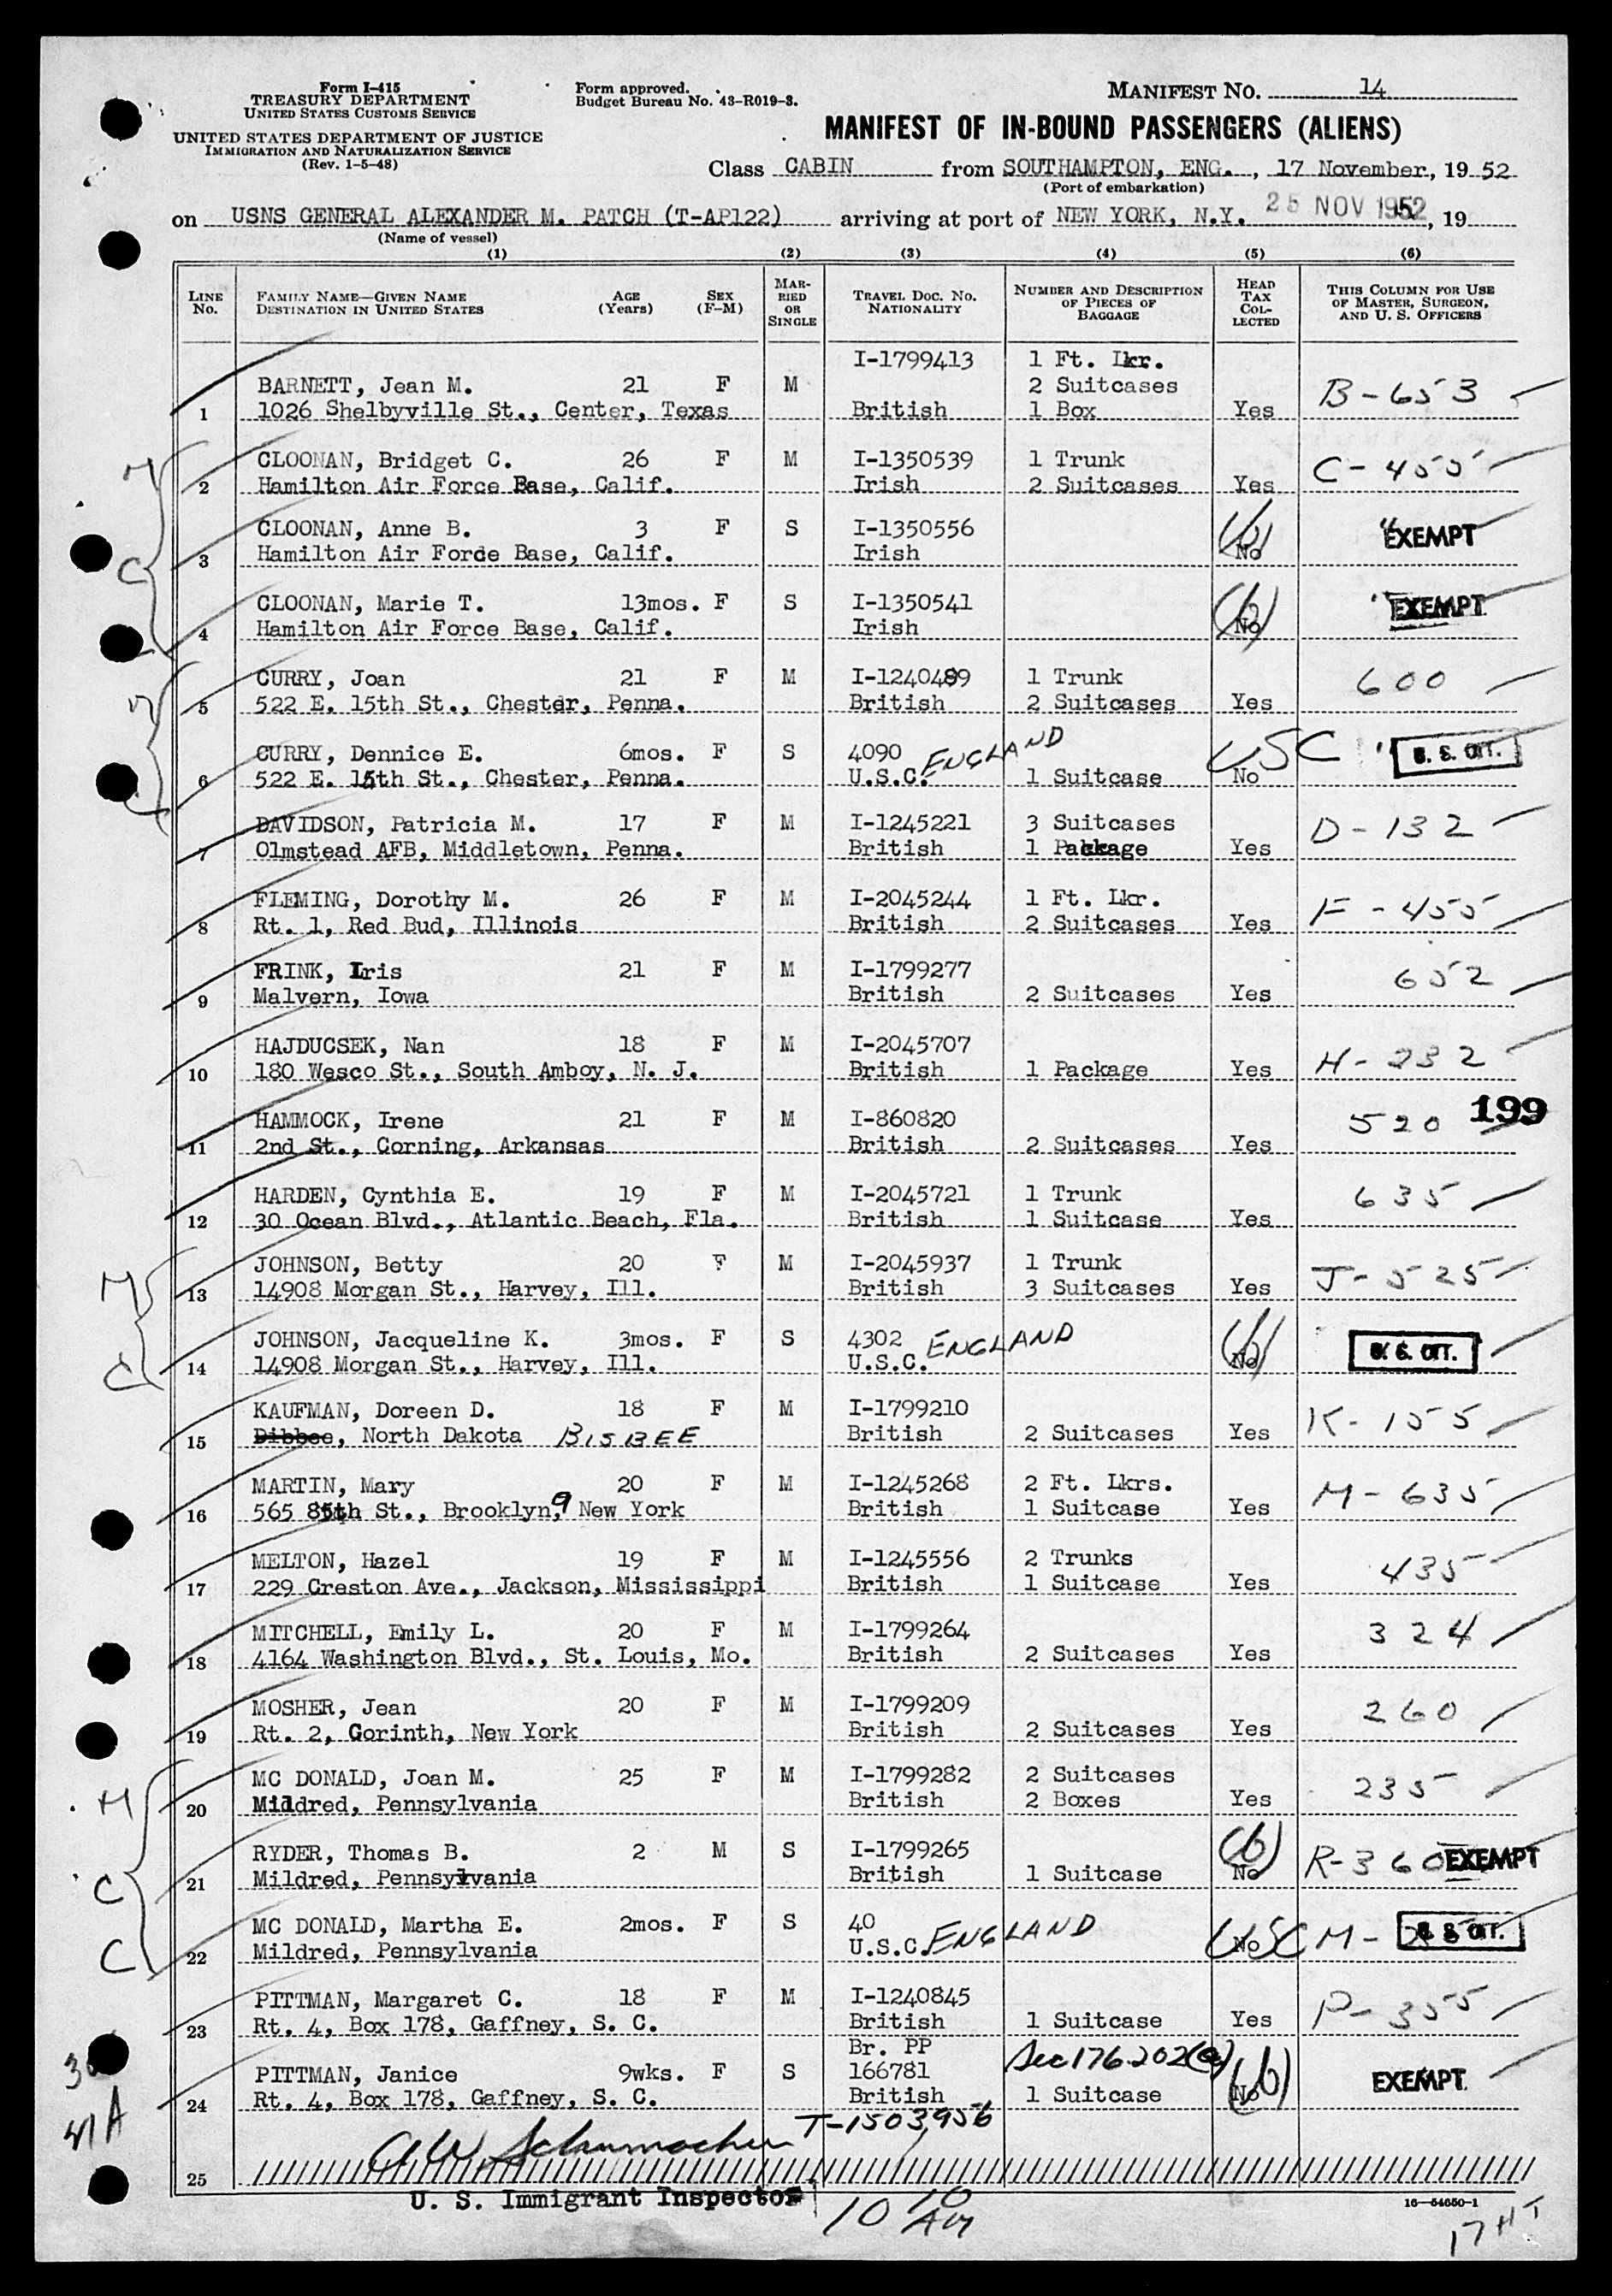 Form I-415
TREASURY DEPARTMENT
UNITED STATES CUSTOMS SERVICE
UNITED STATES DEPARTMENT OF JUSTICE
IMMIGRATION AND NATURALIZATION SERVICE
(Rev. 1-5-48)
Form approved.
Budget Bureau No. 43-R019-3.
MANIFEST NO. 14
MANIFEST OF IN-BOUND PASSENGERS (ALIENS)
Class CABIN from SOUTHAMPTON, ENG., 17 November, 1952
(Port of embarkation)
on USNS GENERAL ALEXANDER M. PATCH (T-AP122) arriving at port of NEW YORK, N.Y. 25 NOV 1952, 19
(Name of vessel)
(1) (2) (3) (4) (5) (6)
LINE No. FAMILY NAME—GIVEN NAME DESTINATION IN UNITED STATES AGE (Years) SEX (F-M) MARRIED OR SINGLE TRAVEL DOC. NO. NATIONALITY NUMBER AND DESCRIPTION OF PIECES OF BAGGAGE HEAD TAX COLLECTED THIS COLUMN FOR USE OF MASTER, SURGEON, AND U. S. OFFICERS
I-1799413 1 Ft. Lkr.
BARNETT, Jean M. 21 F M 2 Suitcases B-653
1 1026 Shelbyville St., Center, Texas British 1 Box Yes
CLOONAN, Bridget C. 26 F M I-1350539 1 Trunk C-455
2 Hamilton Air Force Base, Calif. Irish 2 Suitcases Yes
CLOONAN, Anne B. 3 F S I-1350556 " EXEMPT
3 Hamilton Air Force Base, Calif. Irish No
CLOONAN, Marie T. 13mos. F S I-1350541 " EXEMPT
4 Hamilton Air Force Base, Calif. Irish No
CURRY, Joan 21 F M I-1240489 1 Trunk 600
5 522 E. 15th St., Chester, Penna. British 2 Suitcases Yes
CURRY, Dennice E. 6mos. F S 4090 ENGLAND USC " U. S. CIT.
6 522 E. 15th St., Chester, Penna. U.S.C. 1 Suitcase No
DAVIDSON, Patricia M. 17 F M I-1245221 3 Suitcases D-132
7 Olmstead AFB, Middletown, Penna. British 1 Package Yes
FLEMING, Dorothy M. 26 F M I-2045244 1 Ft. Lkr. F-455
8 Rt. 1, Red Bud, Illinois British 2 Suitcases Yes
FRINK, Iris 21 F M I-1799277 652
9 Malvern, Iowa British 2 Suitcases Yes
HAJDUCSEK, Nan 18 F M I-2045707 H-232
10 180 Wesco St., South Amboy, N. J. British 1 Package Yes
HAMMOCK, Irene 21 F M I-860820 520 199
11 2nd St., Corning, Arkansas British 2 Suitcases Yes
HARDEN, Cynthia E. 19 F M I-2045721 1 Trunk 635
12 30 Ocean Blvd., Atlantic Beach, Fla. British 1 Suitcase Yes
JOHNSON, Betty 20 F M I-2045937 1 Trunk J-525
13 14908 Morgan St., Harvey, Ill. British 3 Suitcases Yes
JOHNSON, Jacqueline K. 3mos. F S 4302 ENGLAND U. S. CIT.
14 14908 Morgan St., Harvey, Ill. U.S.C. No
KAUFMAN, Doreen D. 18 F M I-1799210 K-155
15 Dibbee, North Dakota BISBEE British 2 Suitcases Yes
MARTIN, Mary 20 F M I-1245268 2 Ft. Lkrs. M-635
16 565 85th St., Brooklyn, 9 New York British 1 Suitcase Yes
MELTON, Hazel 19 F M I-1245556 2 Trunks 435
17 229 Creston Ave., Jackson, Mississippi British 1 Suitcase Yes
MITCHELL, Emily L. 20 F M I-1799264 324
18 4164 Washington Blvd., St. Louis, Mo. British 2 Suitcases Yes
MOSHER, Jean 20 F M I-1799209 260
19 Rt. 2, Corinth, New York British 2 Suitcases Yes
MC DONALD, Joan M. 25 F M I-1799282 2 Suitcases 235
20 Mildred, Pennsylvania British 2 Boxes Yes
RYDER, Thomas B. 2 M S I-1799265 (b) R-360 EXEMPT
21 Mildred, Pennsylvania British 1 Suitcase No
MC DONALD, Martha E. 2mos. F S 40 ENGLAND USC M- U. S. CIT.
22 Mildred, Pennsylvania U.S.C. No
PITTMAN, Margaret C. 18 F M I-1240845 P-355
23 Rt. 4, Box 178, Gaffney, S. C. British 1 Suitcase Yes
Br. PP Sec 176.202(a)
PITTMAN, Janice 9wks. F S 166781 (b) EXEMPT
24 Rt. 4, Box 178, Gaffney, S. C. British 1 Suitcase No
T-1503956
A W Schumacher
25
U. S. Immigrant Inspector
10 10 AM
16—54650-1
17 HT